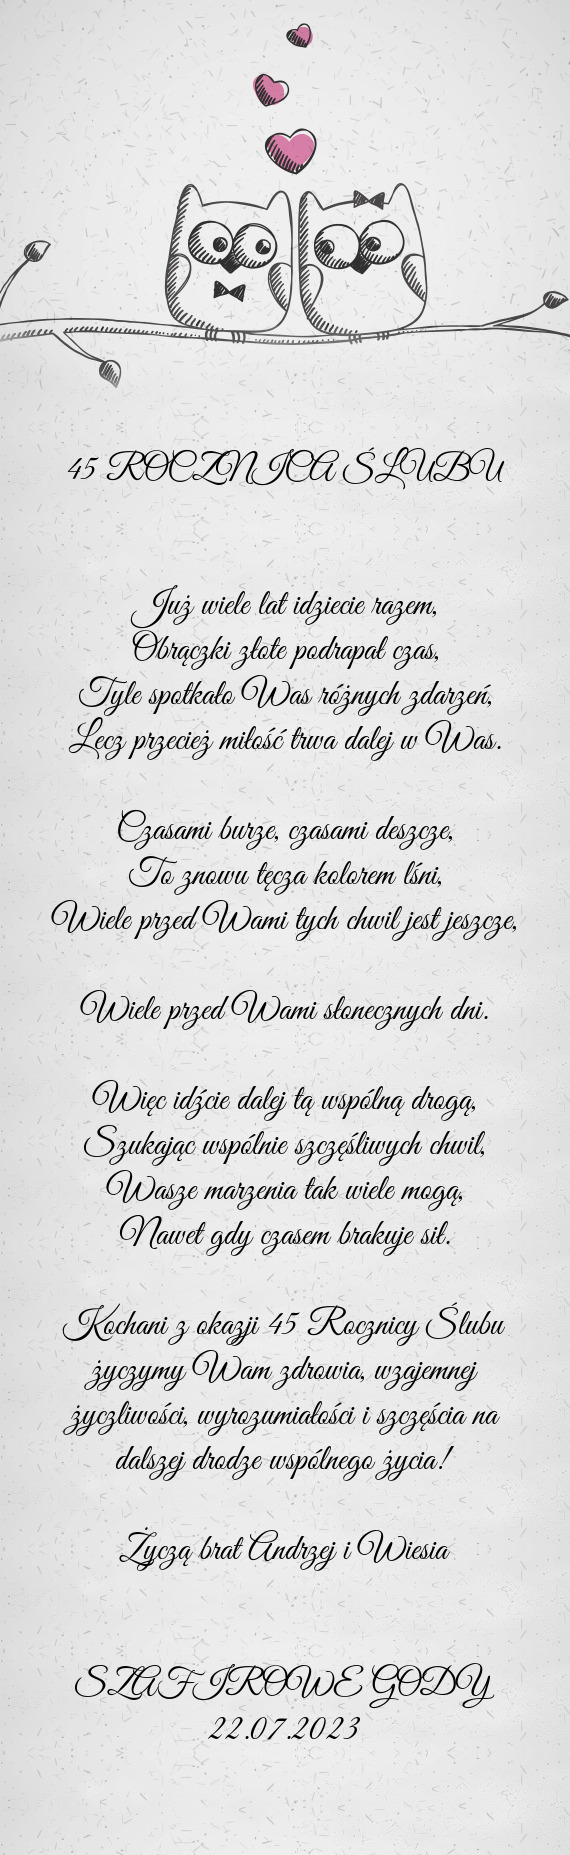 45 ROCZNICA ŚLUBU
Już wiele lat idziecie razem,
Obrączki złote podrapał czas,
Tyle spotkało Was różnych zdarzeń,
Lecz przecież miłość trwa dalej w Was.
Czasami burze, czasami deszcze,
To znowu tęcza kolorem lśni,
Wiele przed Wami tych chwil jest jeszcze,
Wiele przed Wami słonecznych dni.
Więc idźcie dalej tą wspólną drogą,
Szukając wspólnie szczęśliwych chwil,
Wasze marzenia tak wiele mogą,
Nawet gdy czasem brakuje sił.
Kochani z okazji 45 Rocznicy Ślubu
życzymy Wam zdrowia, wzajemnej
życzliwości, wyrozumiałości i szczęścia na
dalszej drodze wspólnego życia!
Życzą brat Andrzej i Wiesia
SZAFIROWE GODY
22.07.2023